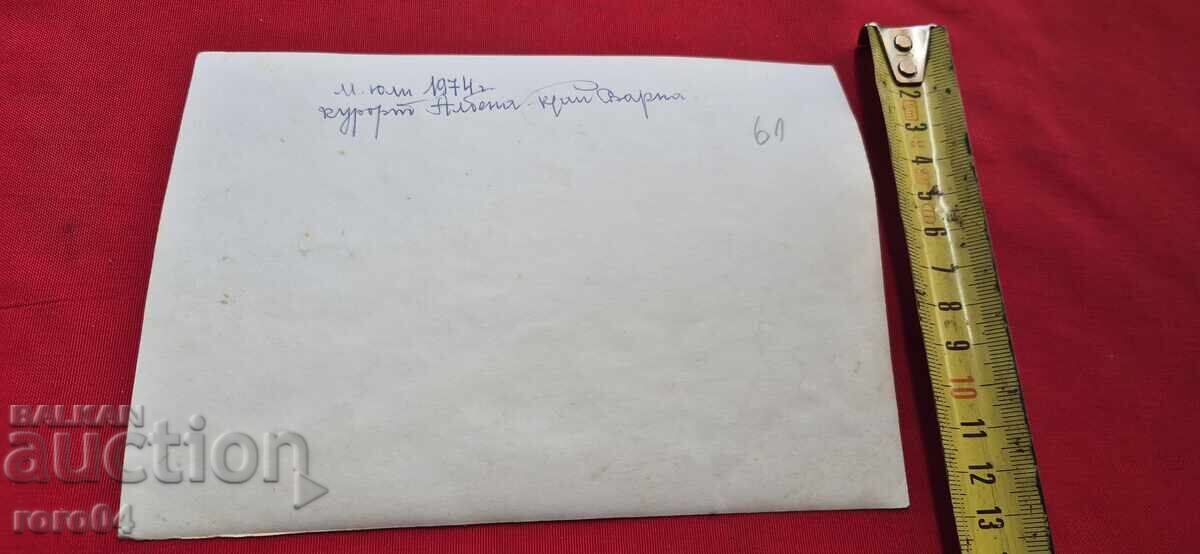 м. юли 1974 г
курорт Албена - край Варна
61
2
3
4
5
6
7
8
9
10
11
12
13
BALKAN
auction
roro04